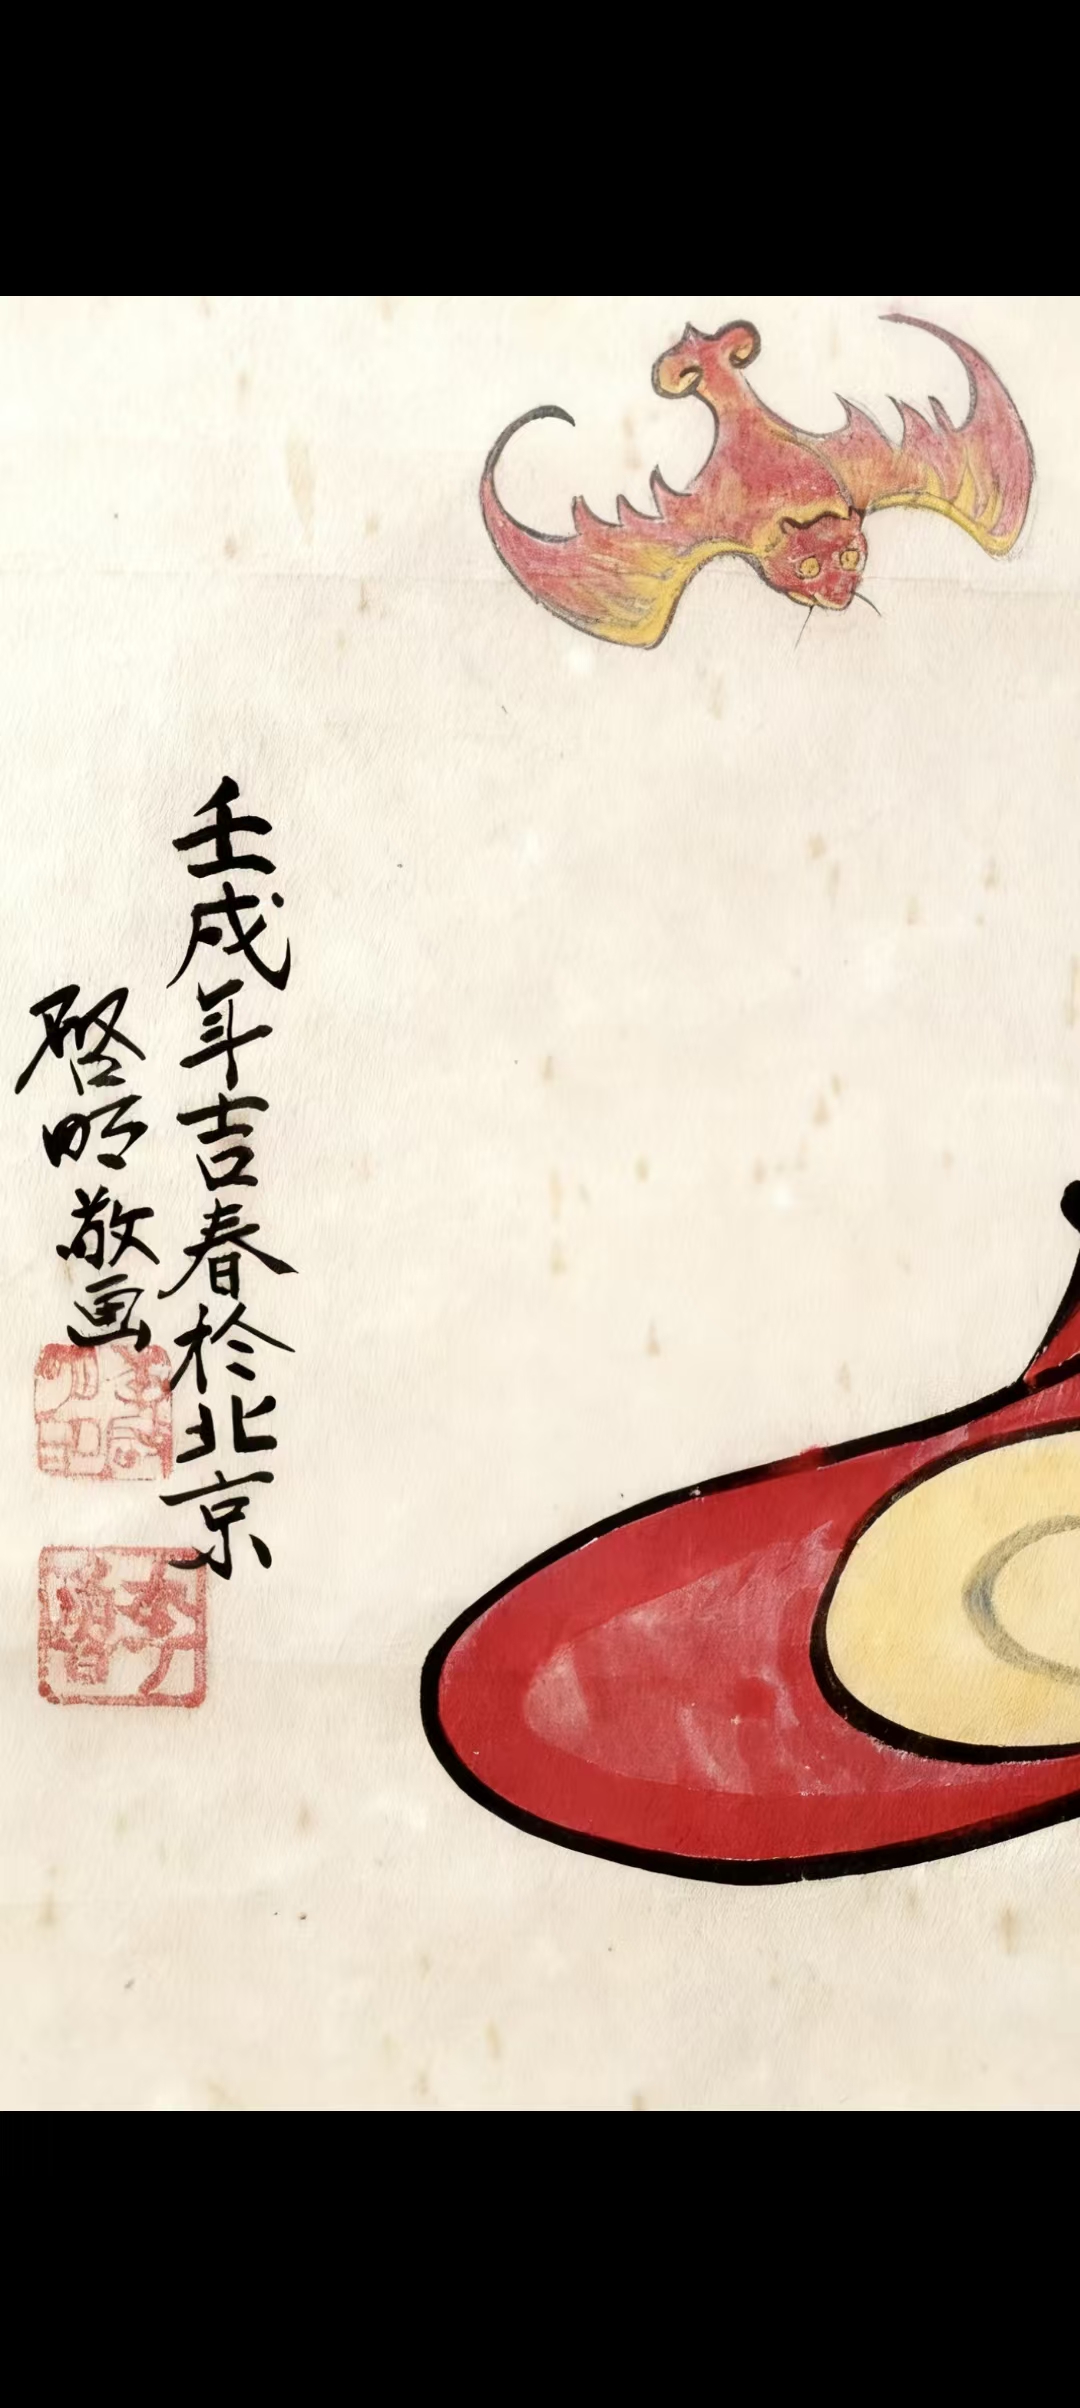 壬戌年吉春於北京
啓明敬画